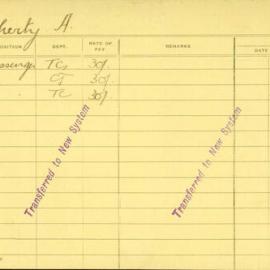 herty A.
OSITION DEPT. RATE OF PAY REMARKS DATE
assenger TC 30/-
CT 30/-
TC 30/-
Transferred to New System
Transferred to New System